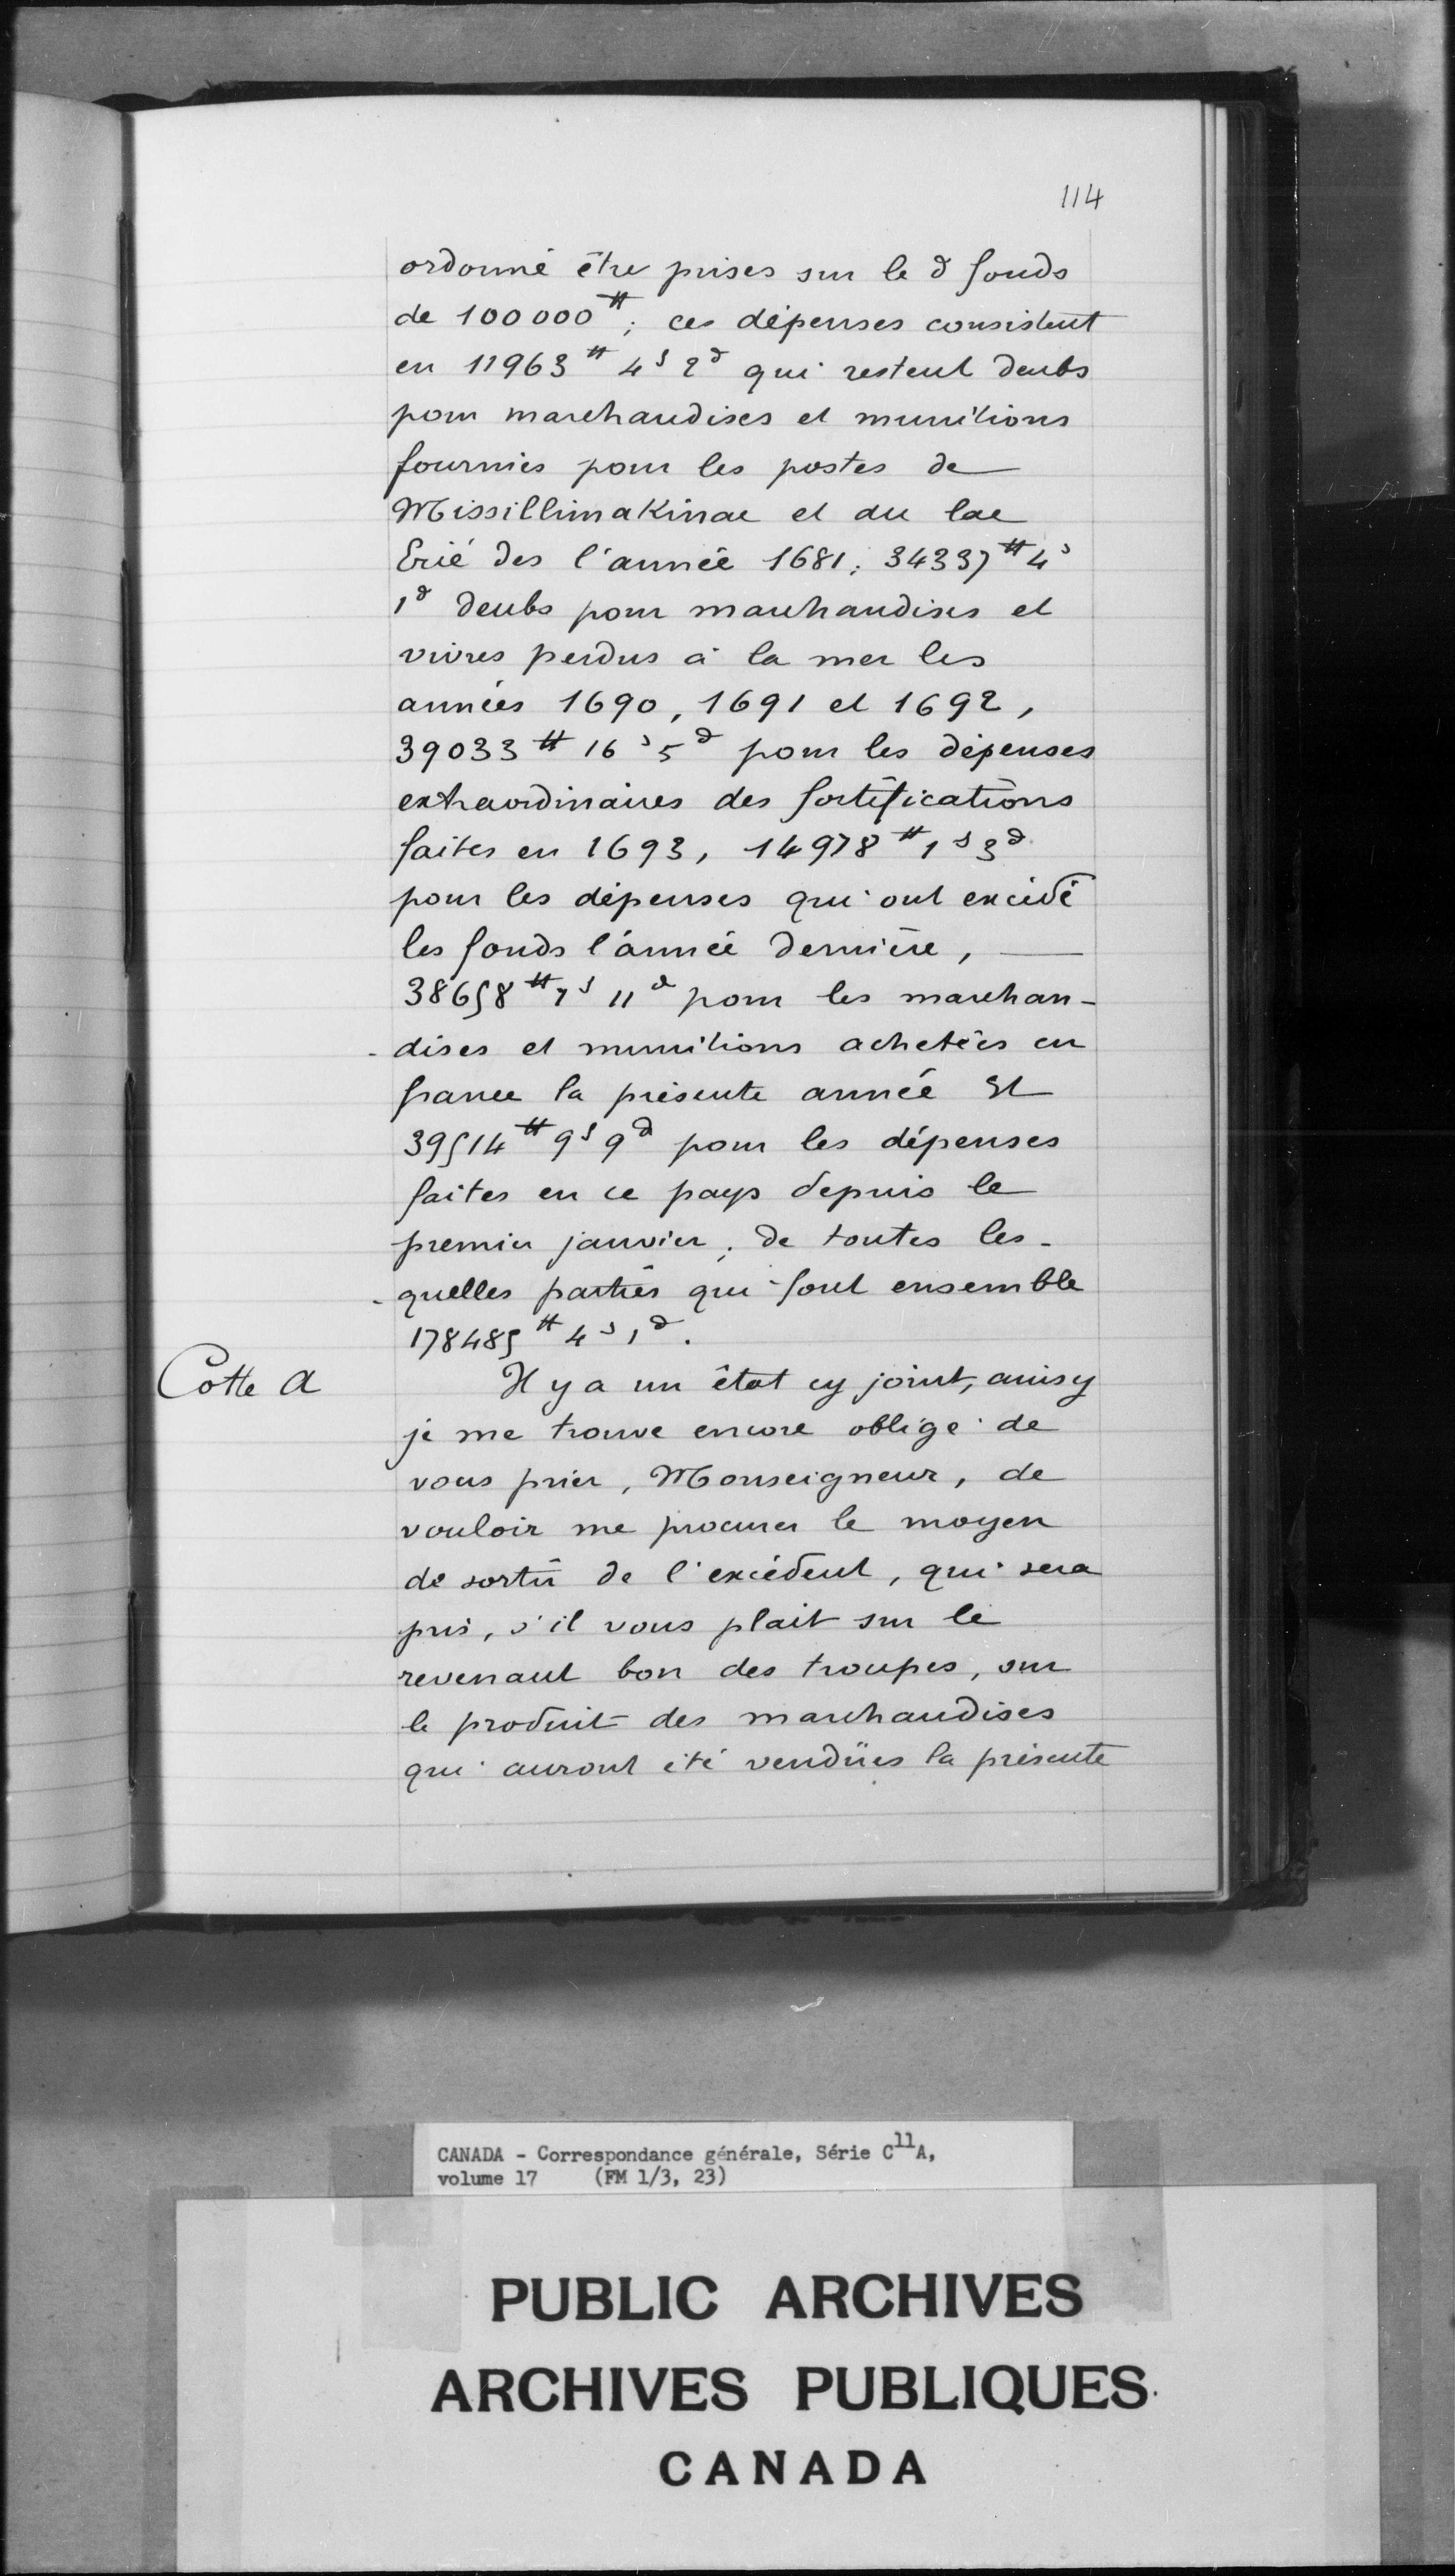 114
ordonné être prises sur le d fonds
de 100000#; ces dépenses consistent
en 11963# 4s 2d qui restent deubs
pour marchandises et munitions
fournies pour les postes de
Missillimakinac et du lac
Erié des l'année 1681; 34337# 4s
1d deubs pour marchandises et
vivres perdus à la mer les
années 1690, 1691 et 1692,
39033# 16s 5d pour les dépenses
extraordinaires des fortifications
faites en 1693, 14978# 1s 3d
pour les dépenses qui ont excédé
les fonds l'année dernière,
38658# 7s 11d pour les marchan-
-dises et munitions achetées en
france la présente année Et
39514# 9s 9d pour les dépenses
faites en ce pays depuis le
premier janvier; de toutes les-
-quelles parties qui font ensemble
178485# 4s 1d.
Cotte A
Il y a un état cy joint, ainsy
je me trouve encore obligé de
vous prier, Monseigneur, de
vouloir me procurer le moyen
de sortir de l'excédent, qui sera
pris, s'il vous plait sur le
revenant bon des troupes, sur
le produit des marchandises
qui auront été vendües la présente
CANADA - Correspondance générale, Série C11A,
volume 17 (FM 1/3, 23)
PUBLIC ARCHIVES
ARCHIVES PUBLIQUES
CANADA